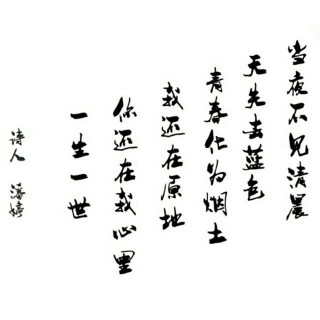 当夜不见清晨
天失去蓝色
青春化为烟土
我还在原地
你还在我心里
一生一世
诗人 潘婷